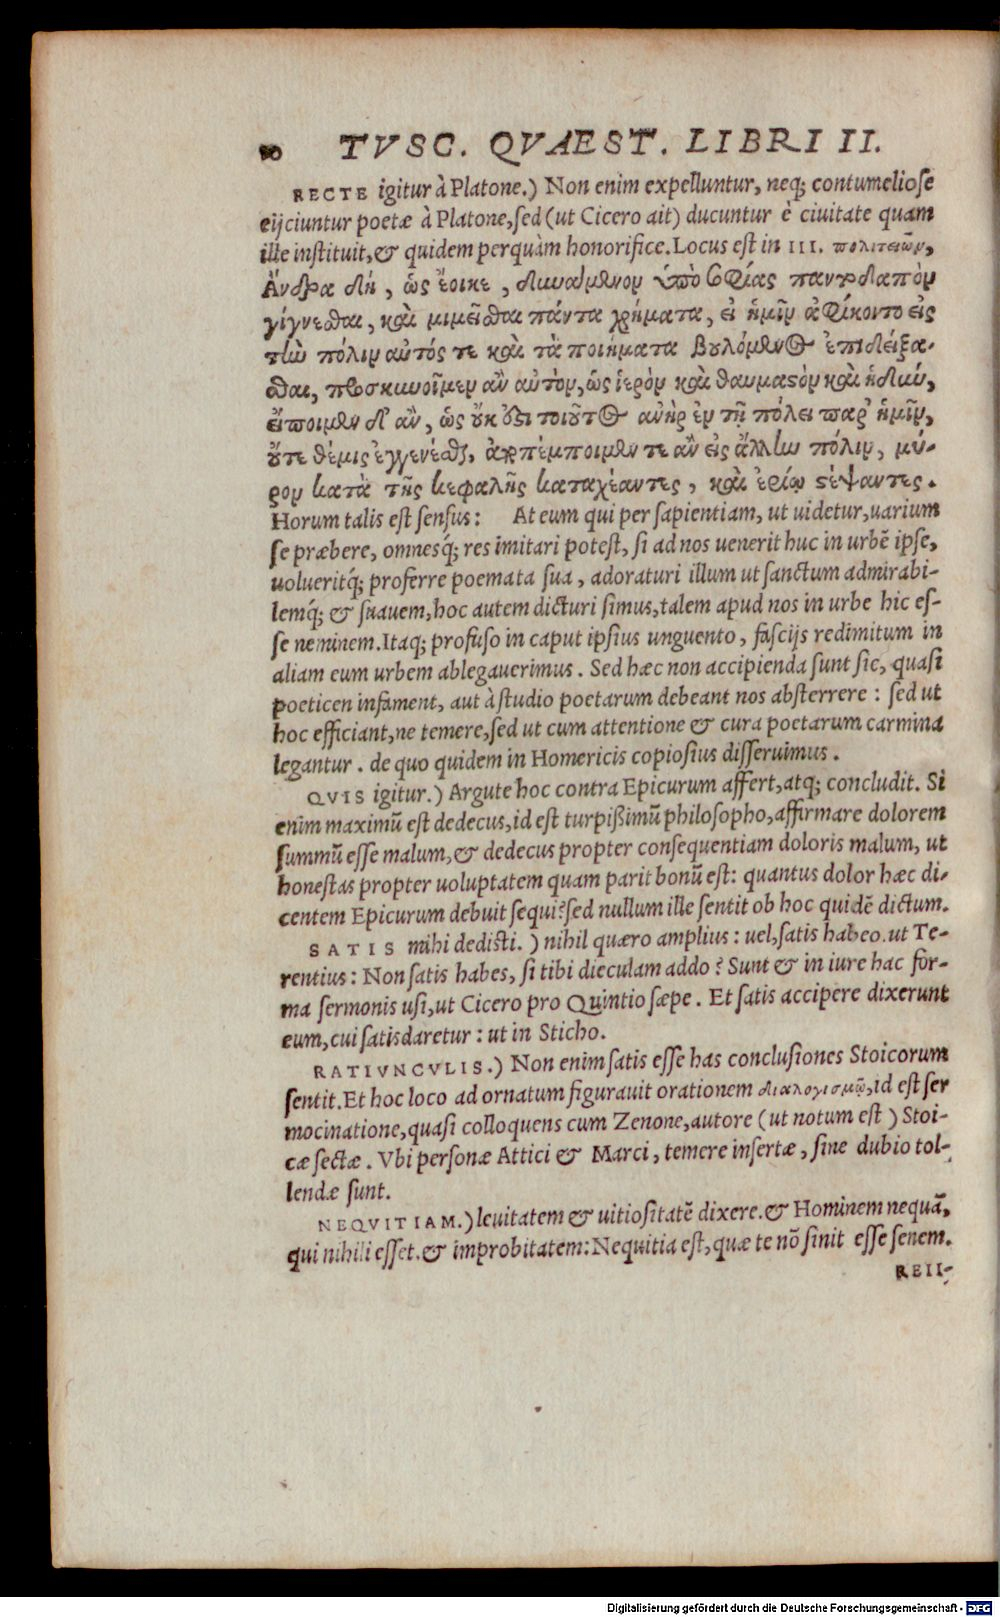 80 TVSC. QVAEST. LIBRI II.
RECTE igitur à Platone.) Non enim expelluntur, neq; contumeliose
eijciuntur poetæ à Platone, sed (ut Cicero ait) ducuntur è ciuitate quam
ille instituit, & quidem perquàm honorifice. Locus est in III. πολιτειῶν,
Ἄνδρα δή, ὡς ἔοικε, δυνάμενον ὑπὸ σοφίας παντοδαπὸν
γίγνεσθαι, καὶ μιμεῖσθαι πάντα χρήματα, εἰ ἡμῖν ἀφίκοντο εἰς
τὴν πόλιν αὐτός τε καὶ τὰ ποιήματα βουλόμενος ἐπιδείξα-
σθαι, προσκυνοῖμεν ἂν αὐτὸν, ὡς ἱερὸν καὶ θαυμαστὸν καὶ ἡδύν,
εἴποιμεν δ' ἂν, ὡς οὔκ ἐστι τοιοῦτος ἀνὴρ ἐν τῇ πόλει παρ' ἡμῖν,
οὔτε θέμις ἐγγενέσθαι, ἀποπέμποιμεν τε ἂν εἰς ἄλλην πόλιν, μύ-
ρον κατὰ τῆς κεφαλῆς καταχέαντες, καὶ ἐρίῳ στέψαντες.
Horum talis est sensus: At eum qui per sapientiam, ut uidetur, uarium
se præbere, omnesq́; res imitari potest, si ad nos uenerit huc in urbē ipse,
uolueritq́; proferre poemata sua, adoraturi illum ut sanctum admirabi-
lemq́; & suauem, hoc autem dicturi simus, talem apud nos in urbe hic es-
se neminem. Itaq; profuso in caput ipsius unguento, fascijs redimitum in
aliam eum urbem ablegauerimus. Sed hæc non accipienda sunt sic, quasi
poeticen infament, aut à studio poetarum debeant nos absterrere: sed ut
hoc efficiant, ne temere, sed ut cum attentione & cura poetarum carmina
legantur. de quo quidem in Homericis copiosius disseruimus.
QVIS igitur.) Argute hoc contra Epicurum affert, atq; concludit. Si
enim maximū est dedecus, id est turpißimū philosopho, affirmare dolorem
summū esse malum, & dedecus propter consequentiam doloris malum, ut
honestas propter uoluptatem quam parit bonū est: quantus dolor hæc di-
centem Epicurum debuit sequi? sed nullum ille sentit ob hoc quidē dictum.
SATIS mihi dedisti.) nihil quæro amplius: uel, satis habeo. ut Te-
rentius: Non satis habes, si tibi dieculam addo? Sunt & in iure hac for-
ma sermonis usi, ut Cicero pro Quintio sæpe. Et satis accipere dixerunt
eum, cui satisdaretur: ut in Sticho.
RATIVNCVLIS.) Non enim satis esse has conclusiones Stoicorum
sentit. Et hoc loco ad ornatum figurauit orationem διαλογισμῷ, id est ser
mocinatione, quasi colloquens cum Zenone, autore (ut notum est) Stoi-
cæ sectæ. Vbi personæ Attici & Marci, temere insertæ, sine dubio tol-
lendæ sunt.
NEQVITIAM.) leuitatem & uitiositatē dixere. & Hominem nequā,
qui nihili esset. & improbitatem: Nequitia est, quæ te nō sinit esse senem.
REII-
Digitalisierung gefördert durch die Deutsche Forschungsgemeinschaft - DFG